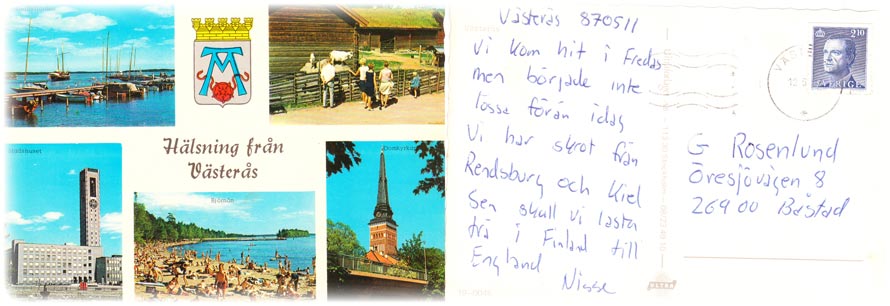 Hälsning från
Västerås
Björnön
Västerås 870511
Vi kom hit i Fredas
men började inte
lossa förän idag
Vi har skrot från
Rendsburg och Kiel
Sen skall vi lasta
trä i Finland till
England
Nisse
2 10
SVERIGE
G Rosenlund
Öresjövägen 8
269 00 Båstad
ULTRA